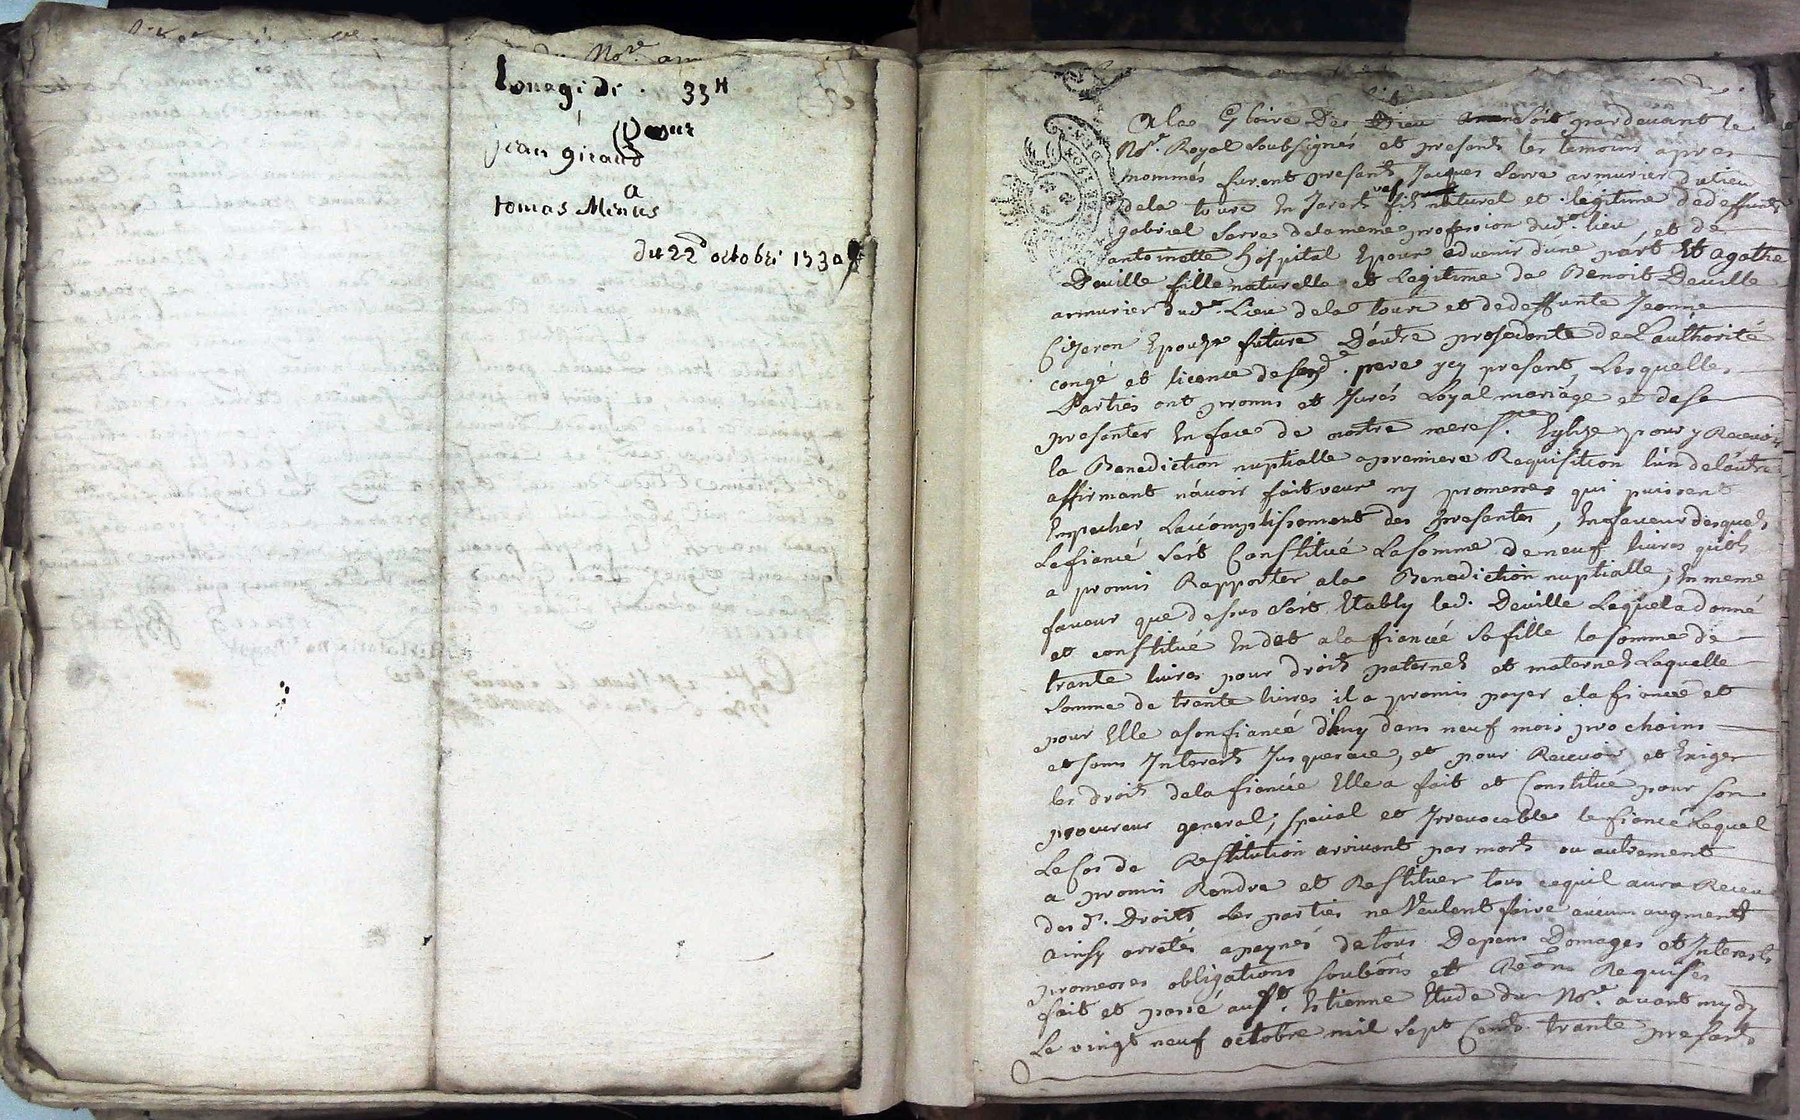 No.re
Louagé de . 33 ₶
Pour
jean giraud
a
tomas Menus
du 22e octobre 1730
Ala Gloire De Dieu soit pardevant le
No.re Royal soubsignés et presents les temoins apres
nommés furent presents Jacques Serre armurier du lieu
dela toure En Jarests fils naturel et legitime dedeffunts
gabriel Serre delameme profession dud. lieu, et de
antoinette hospital Epoux advenir d'une part Et Agathe
Deville fille naturelle et Legitime de Benoit Deville
armurier dud. Lieu dela toure et dedeffunte Jeanne
Cizeron Epouze future D'autre procedante de L'authorité
congé et licence desond. pere ycy present, Lesquelles
Parties ont promis et Jurés Loyal mariage et dese
presenter En face de nostre mere s. Eglize pour y Recevoir
la Benediction nuptialle a premiere Requisition l'un del'autre
affirmant n'avoir fait veux ny promesses qui puissent
Empecher L'accomplissement des presantes, En faveur desquels
Le fiancé s'est Constitué La somme de neuf livres qu'il
a promis Rapporter ala Benediction nuptialle, En meme
faveur que dessus s'est Etably led. Deville Lequel a donné
et constitué En dot a la fiancée sa fille la somme de
trante livres pour droits paternels et maternels Laquelle
somme de trante livres il a promis payer ala fiancée et
pour Elle a son fiancé d'huy dans neuf mois prochains
et sans Interests Jusques a ce, et pour Recevoir et Exiger
les droits dela fiancée Elle a fait et Constitué pour son
procureur general, special et Irrevocable le fiancé Lequel
Le Cas de Restitution arrivant par mort ou autrement
a promis Rendre et Restituer tous ce qu'il aura Receu
desd. Droits Les parties ne Veulent faire aucun augment
Ainsy arretés a peynes de tous Depens Domages et Interests
promesses obligations soubons et Reãons Requises
fait et passé a St. Estienne Etude du No.re avant mydy
Le vingt neuf octobre mil sept Cents trante presents